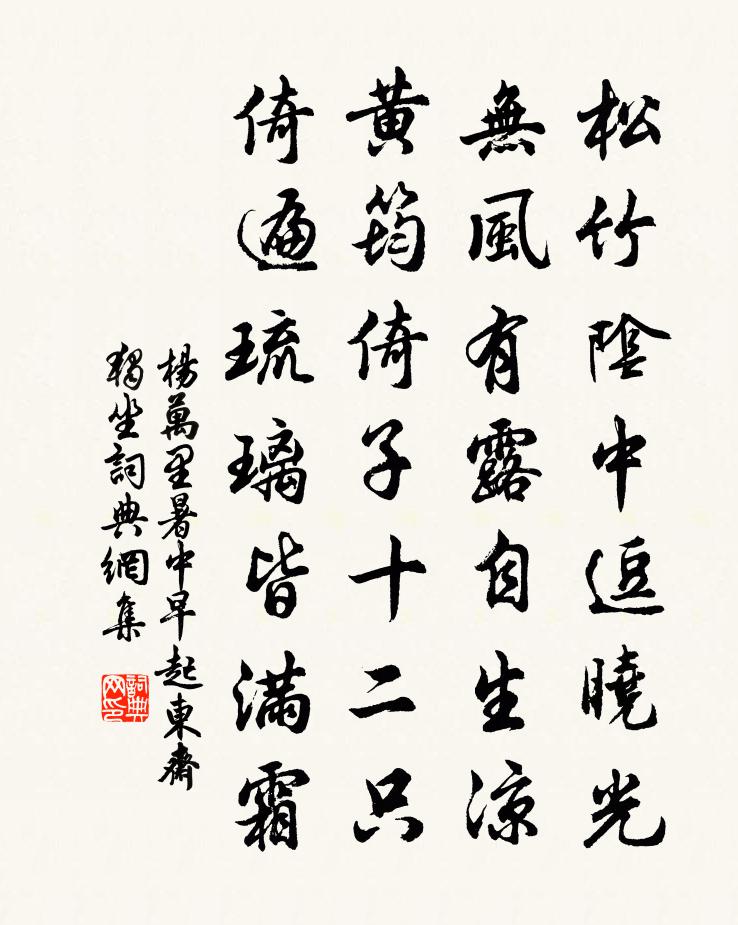 松竹陰中逗曉光
無風有露自生涼
黃筠倚子十二只
倚遍琉璃皆滿霜
楊萬里暑中早起東齋
獨坐詞典網集
詞典网印